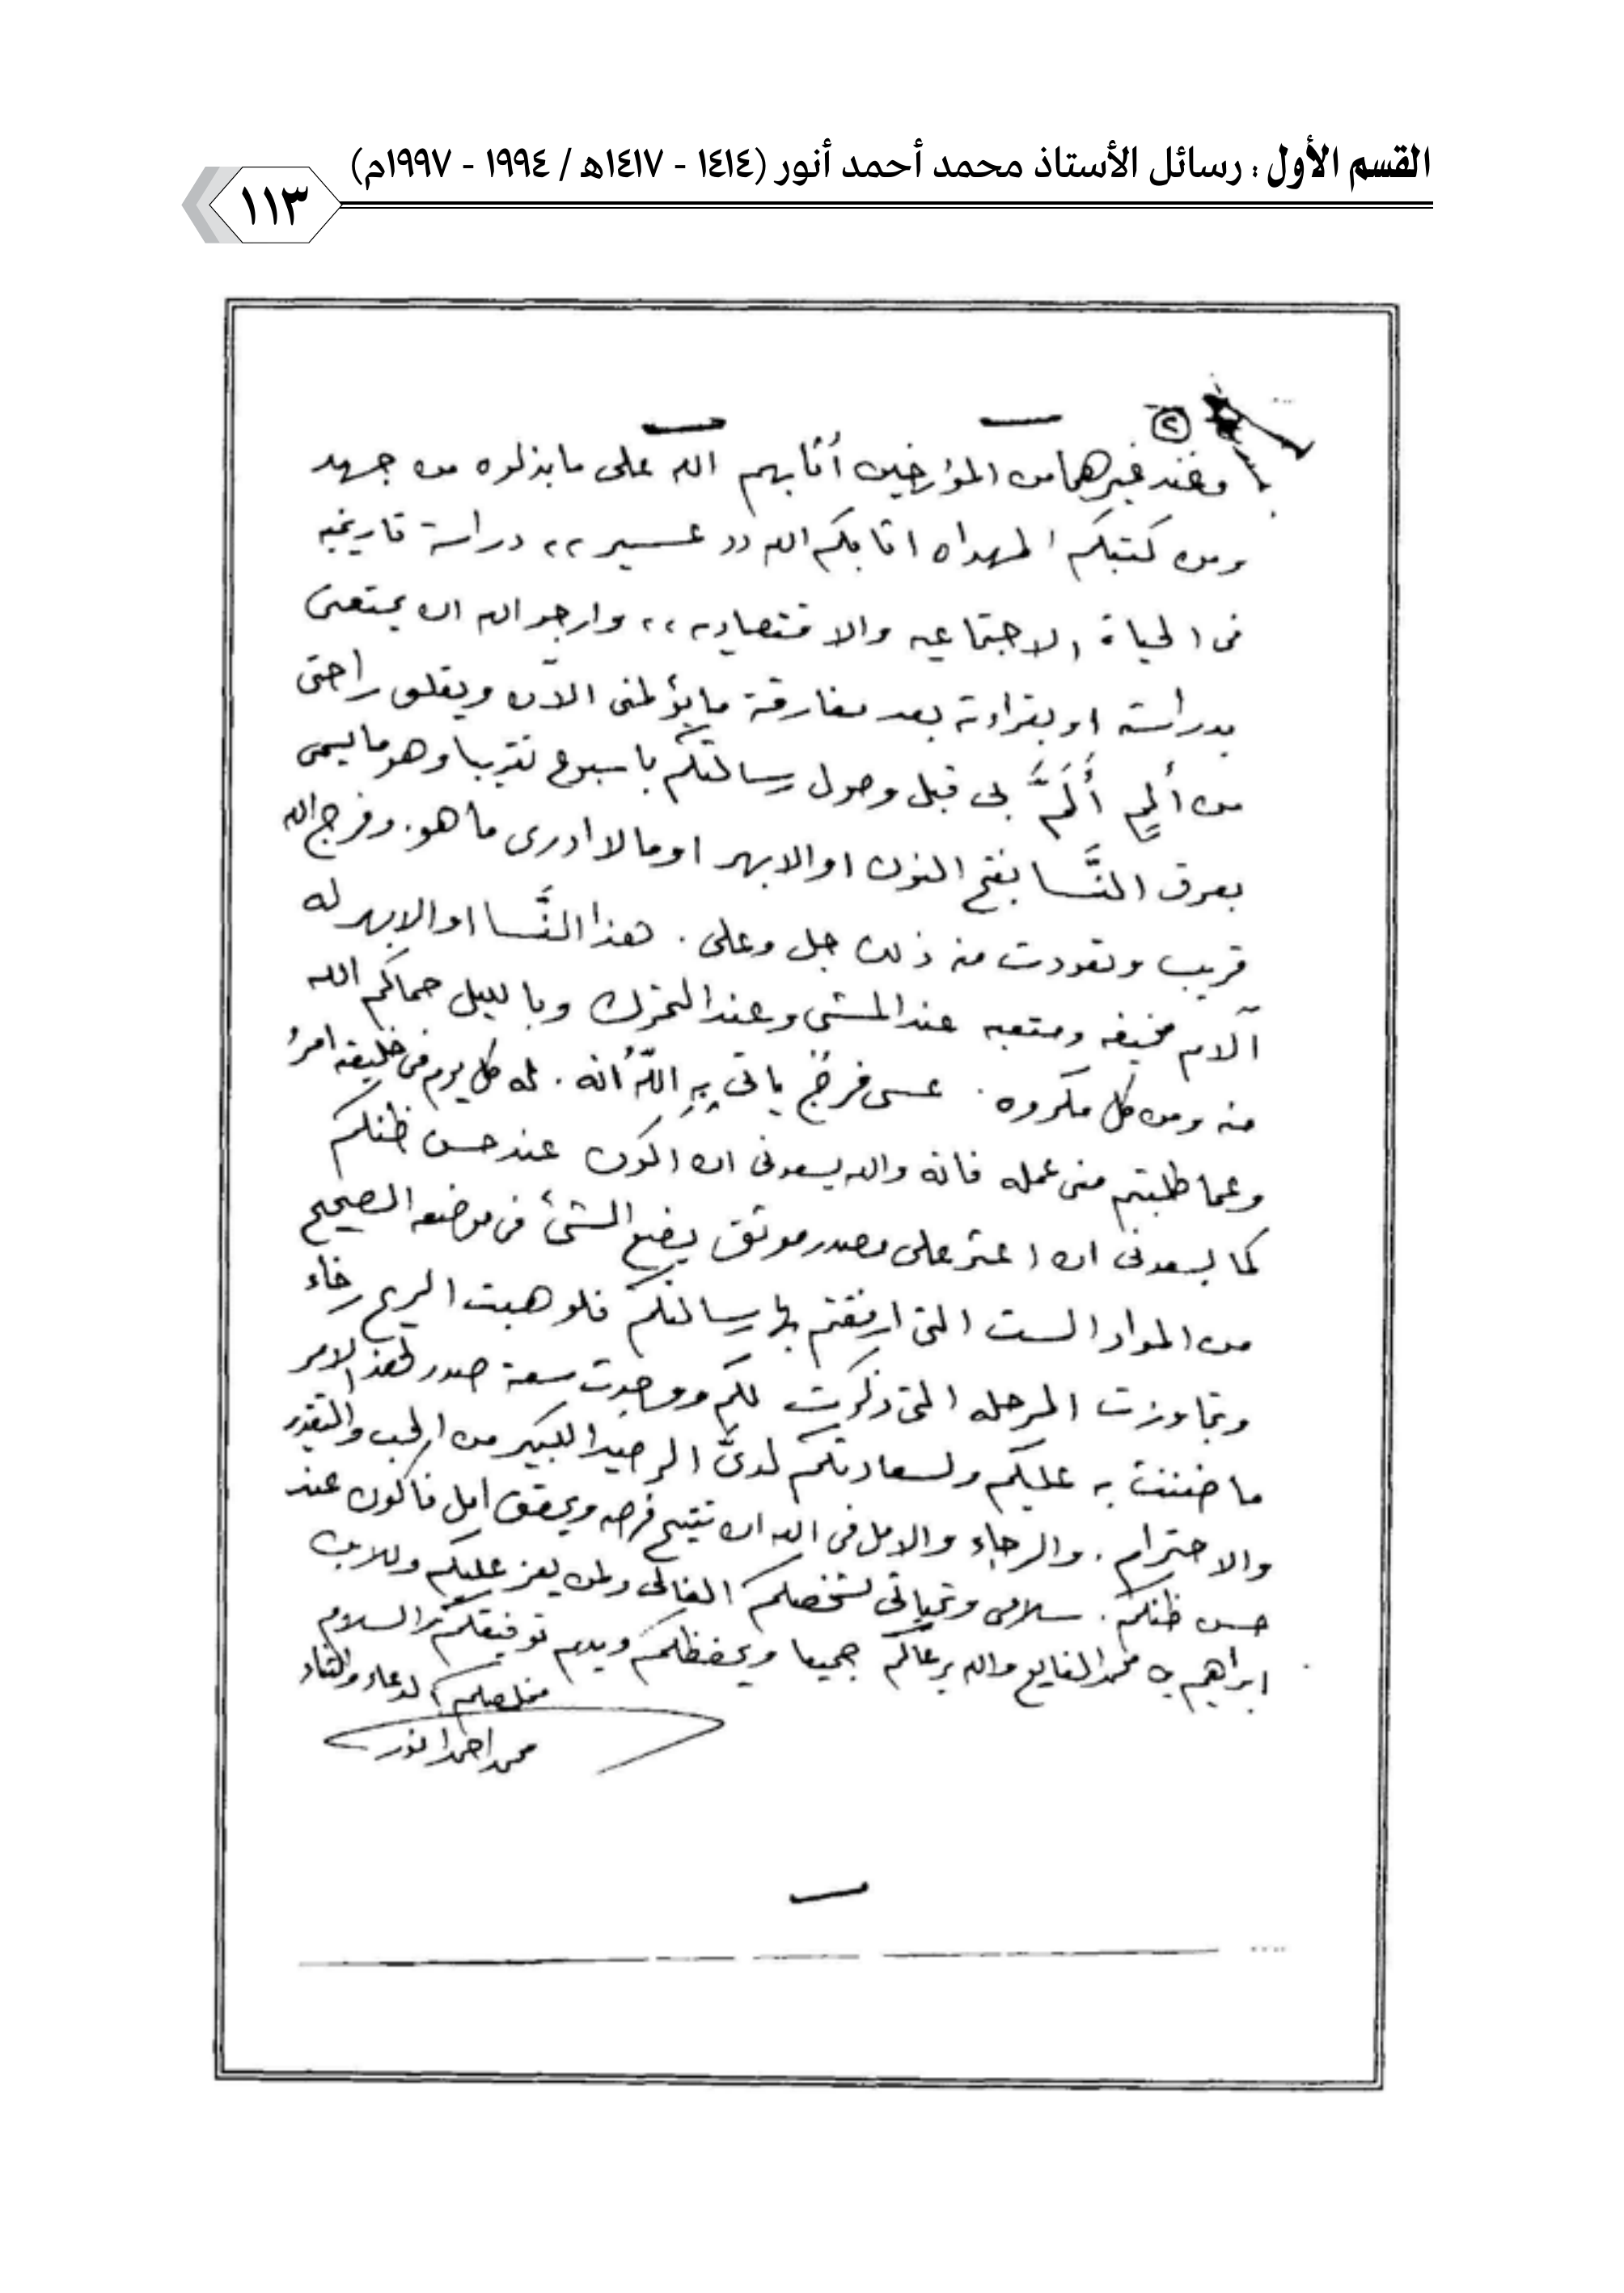 القسم الأول : رسائل الأستاذ محمد أحمد أنور (١٤١٤ - ١٤١٧هـ / ١٩٩٤ - ١٩٩٧م)
١١٣
٢
وعند غيرهما من المؤرخين أثابهم الله على ما بذلوه من جهد
ومن كتبكم المهداه اثابكم الله (( عسير ،، دراسة تاريخيه
فى الحياة الاجتماعيه والاقتصاديه ،، وارجو الله ان يمتعنى
بدراسته او بقراءته بعد مفارقة ما يؤلمنى الآن ويقلق راحتى
من ألمٍ أَلَمَّ بى قبل وصول رسالتكم باسبوع تقريبا وهو ما يسمى
بعرق النَّسا بفتح النون او الابهر او مالا ادرى ما هو. وفرج الله
قريب وتعودت منه ذلك جل وعلى . هذا النَّسا او الابهر له
آلام مخيفه ومتعبه عند المشى وعند التحرك وبالليل حماكم الله
منه ومن كل مكروه . عسى فرجٌ ياتى بِهِ اللّهُ أنه . له كل يوم فى خليقته امرُ
وعما طلبتم منى عمله فانه والله يسعدنى ان اكون عند حسن ظنكم
كما يسعدنى ان اعثر على مصدر موثق يضع الشئ فى موضعه الصحيح
من المواد الست التى ارفقتم بها رسالتكم فلو هبت الريح رخاء
وتجاوزت المرحله التى ذكرت لكم ووجدت سعة صدر لهذ الامر
ما ضننت به عليكم ولسعادتكم لدىَّ الرصيد الكبير من الحب والتقدير
والاحترام . والرجاء والامل فى الله ان تتيح فرصه ويحقق امل فاكون عند
حسن ظنكم . سلامى وتحياتى لشخصكم الغالى ولمن يعز عليكم وللابن
ابراهيم بن محمد الفايع والله يرعاكم جميعا ويحفظكم ويديم توفيقكم والسلام
مخلصكم الدعاء والثناء
محمد احمد انور